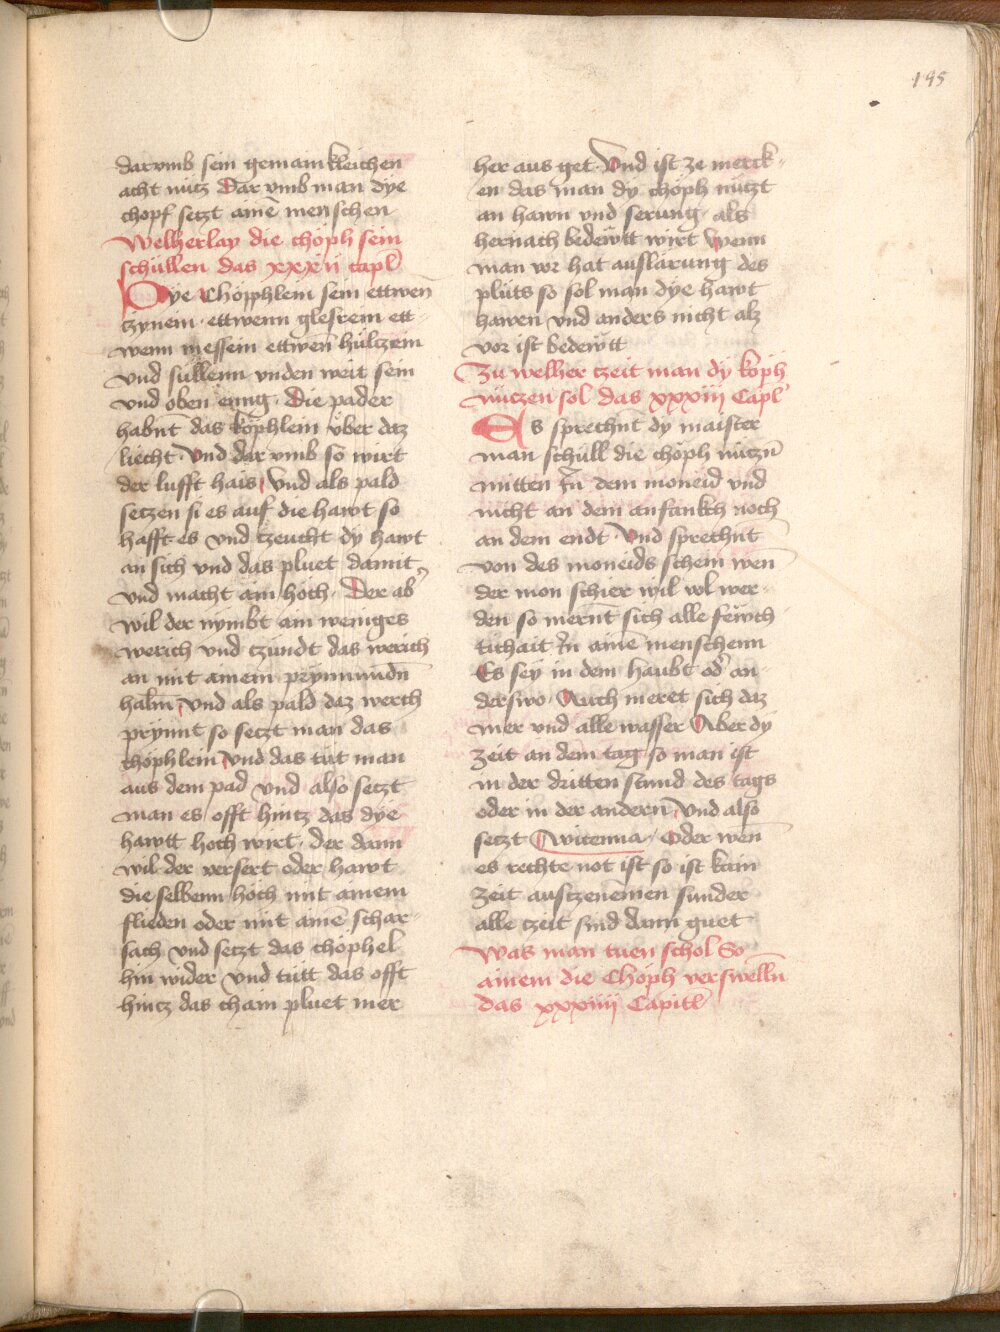 195
dar vmb sein gemainkleichen
acht nücz Dar vmb man dye
chopf seczt ainē menschen
Welherlay die chöph sein
schüllen das xxxii capl
Dye Chöpphlein sein ettwen
czynein · ettwenn glesrein ett
wenn messein ettwen̄ hülczein
vnd süllenn vnden weit sein
vnd oben enng · Die pader
habn̄t das köphlein vber daz
liecht · Vnd dar vmb so wirt
der lufft hais Vnd als pald
seczen si es auf die hawt so
hafft es vnd czeucht dy hawt
an sich vnd das pluet damit
vnd macht ain höch · Der ab
wil der nymbt ain weniges
werich vnd czündt das werich
an mit ainem prynnundn̄
halm̄ Vnd als pald daz werch
prynnt so seczt man das
chöphlein Vnd das tüt man
aus dem pad vnd also seczt
man es offt hincz das dye
hawtt hoch wirt · der dann
wil der versert oder hawt
die selbenn höch mit ainem
flieden oder mit ainē schar
sach vnd seczt das chöphel
hin wider vnd tütt das offt
hincz das cham pluet mer
her aus get · Vnd ist ze merck
en das man dy chöph nüczt
an hawn vnd serung als
hernach bedewtt wirt Wenn
man vor hat auslärung des
plüts so sol man dye hawt
hawen vnd anders nicht alz
vor ist bedewtt
Zu welher czeit man dy köph
nüczen sol das xxxiij Capl
Es sprechn̄t dy maister
man schüll die chöph nüczn̄
mitten in dem moneid vnd
nicht an dem anfankch noch
an dem endt · Vnd sprechnt
von des moneids schein wen
der mon schier wil vol wer
den so mern̄t sich alle fewch
tichait in ainē menschenn
Es sey in dem haubt od an
derswo Auch meret sich daz
mer vnd alle wasser Aber dy
zeit an dem tag so man ist
in der dritten stund des tags
oder in der andern̄ Vnd also
seczt Auicenna · Oder wen̄
es rechte not ist so ist kain
zeit auszenemen sunder
alle czeit sind dann guet
Was man tuen schol So
ainem die Chöph verswelln̄
das xxxiiij Capitl